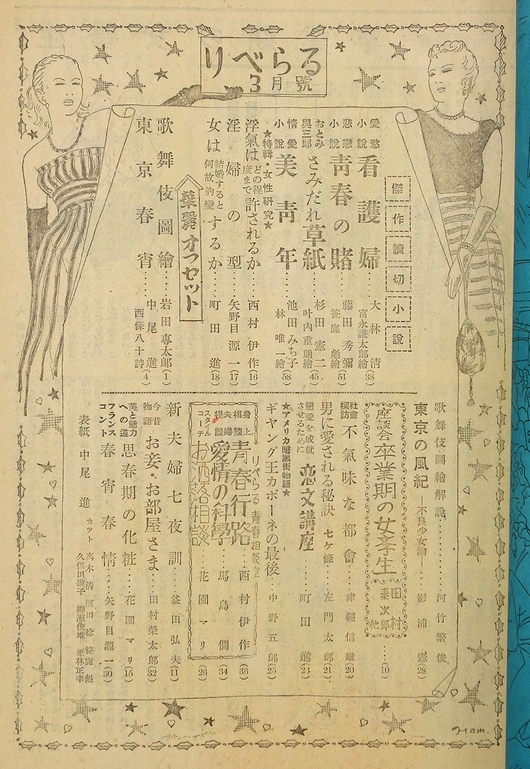 りべらる
3月號
傑作讀切小說
愛慾小說 看護婦 大林清 富永謙太郎繪(38)
悲戀小說 靑春の賭 藤田秀彌(51)
おとみ與三郎 さみだれ草紙 杉田憲二 叶內重朗繪(45)
情愛小說 美靑年 池田みち子 林唯一繪(58)
★特輯・女性硏究★
浮氣はどの程度まで許されるか 西村伊作(16)
淫婦の型 矢野目源一(17)
女は結婚すると何故豹變するか 町田進(18)
華麗オフセット
歌舞伎圖繪 岩田專太郎(1)
東京春宵 中尾進 西條八十詩(4)
歌舞伎圖繪解說 河竹繁俊
東京の風紀 不良の女勸 影浦憲(28)
座談會 卒業期の女學生 田村泰次郎他(10)
社會探訪 不氣味な都會 津輕信雄(20)
男に愛される秘訣 七ケ條 左門太郎(21)
戀愛を成就させるために 戀文講座 町田進(23)
★アメリカ暗黑街物語★
ギャング王カポーネの最後 中野五郎(25)
りべらる靑春相談室
身相談 靑春行路 西村伊作(36)
夫婦相談 愛情の科學 馬島僴(34)
スタイルコーチ お洒落相談 花園マリ(26)
新夫婦七夜訓 益田弘夫(11)
今昔物語 お妾・お部屋さま 田村榮太郎(32)
美と魅力への道 思春期の化粧 花園マリ(15)
フランスコント 春宵春情 矢野目源一(30)
表紙 中尾進
カット 高木清